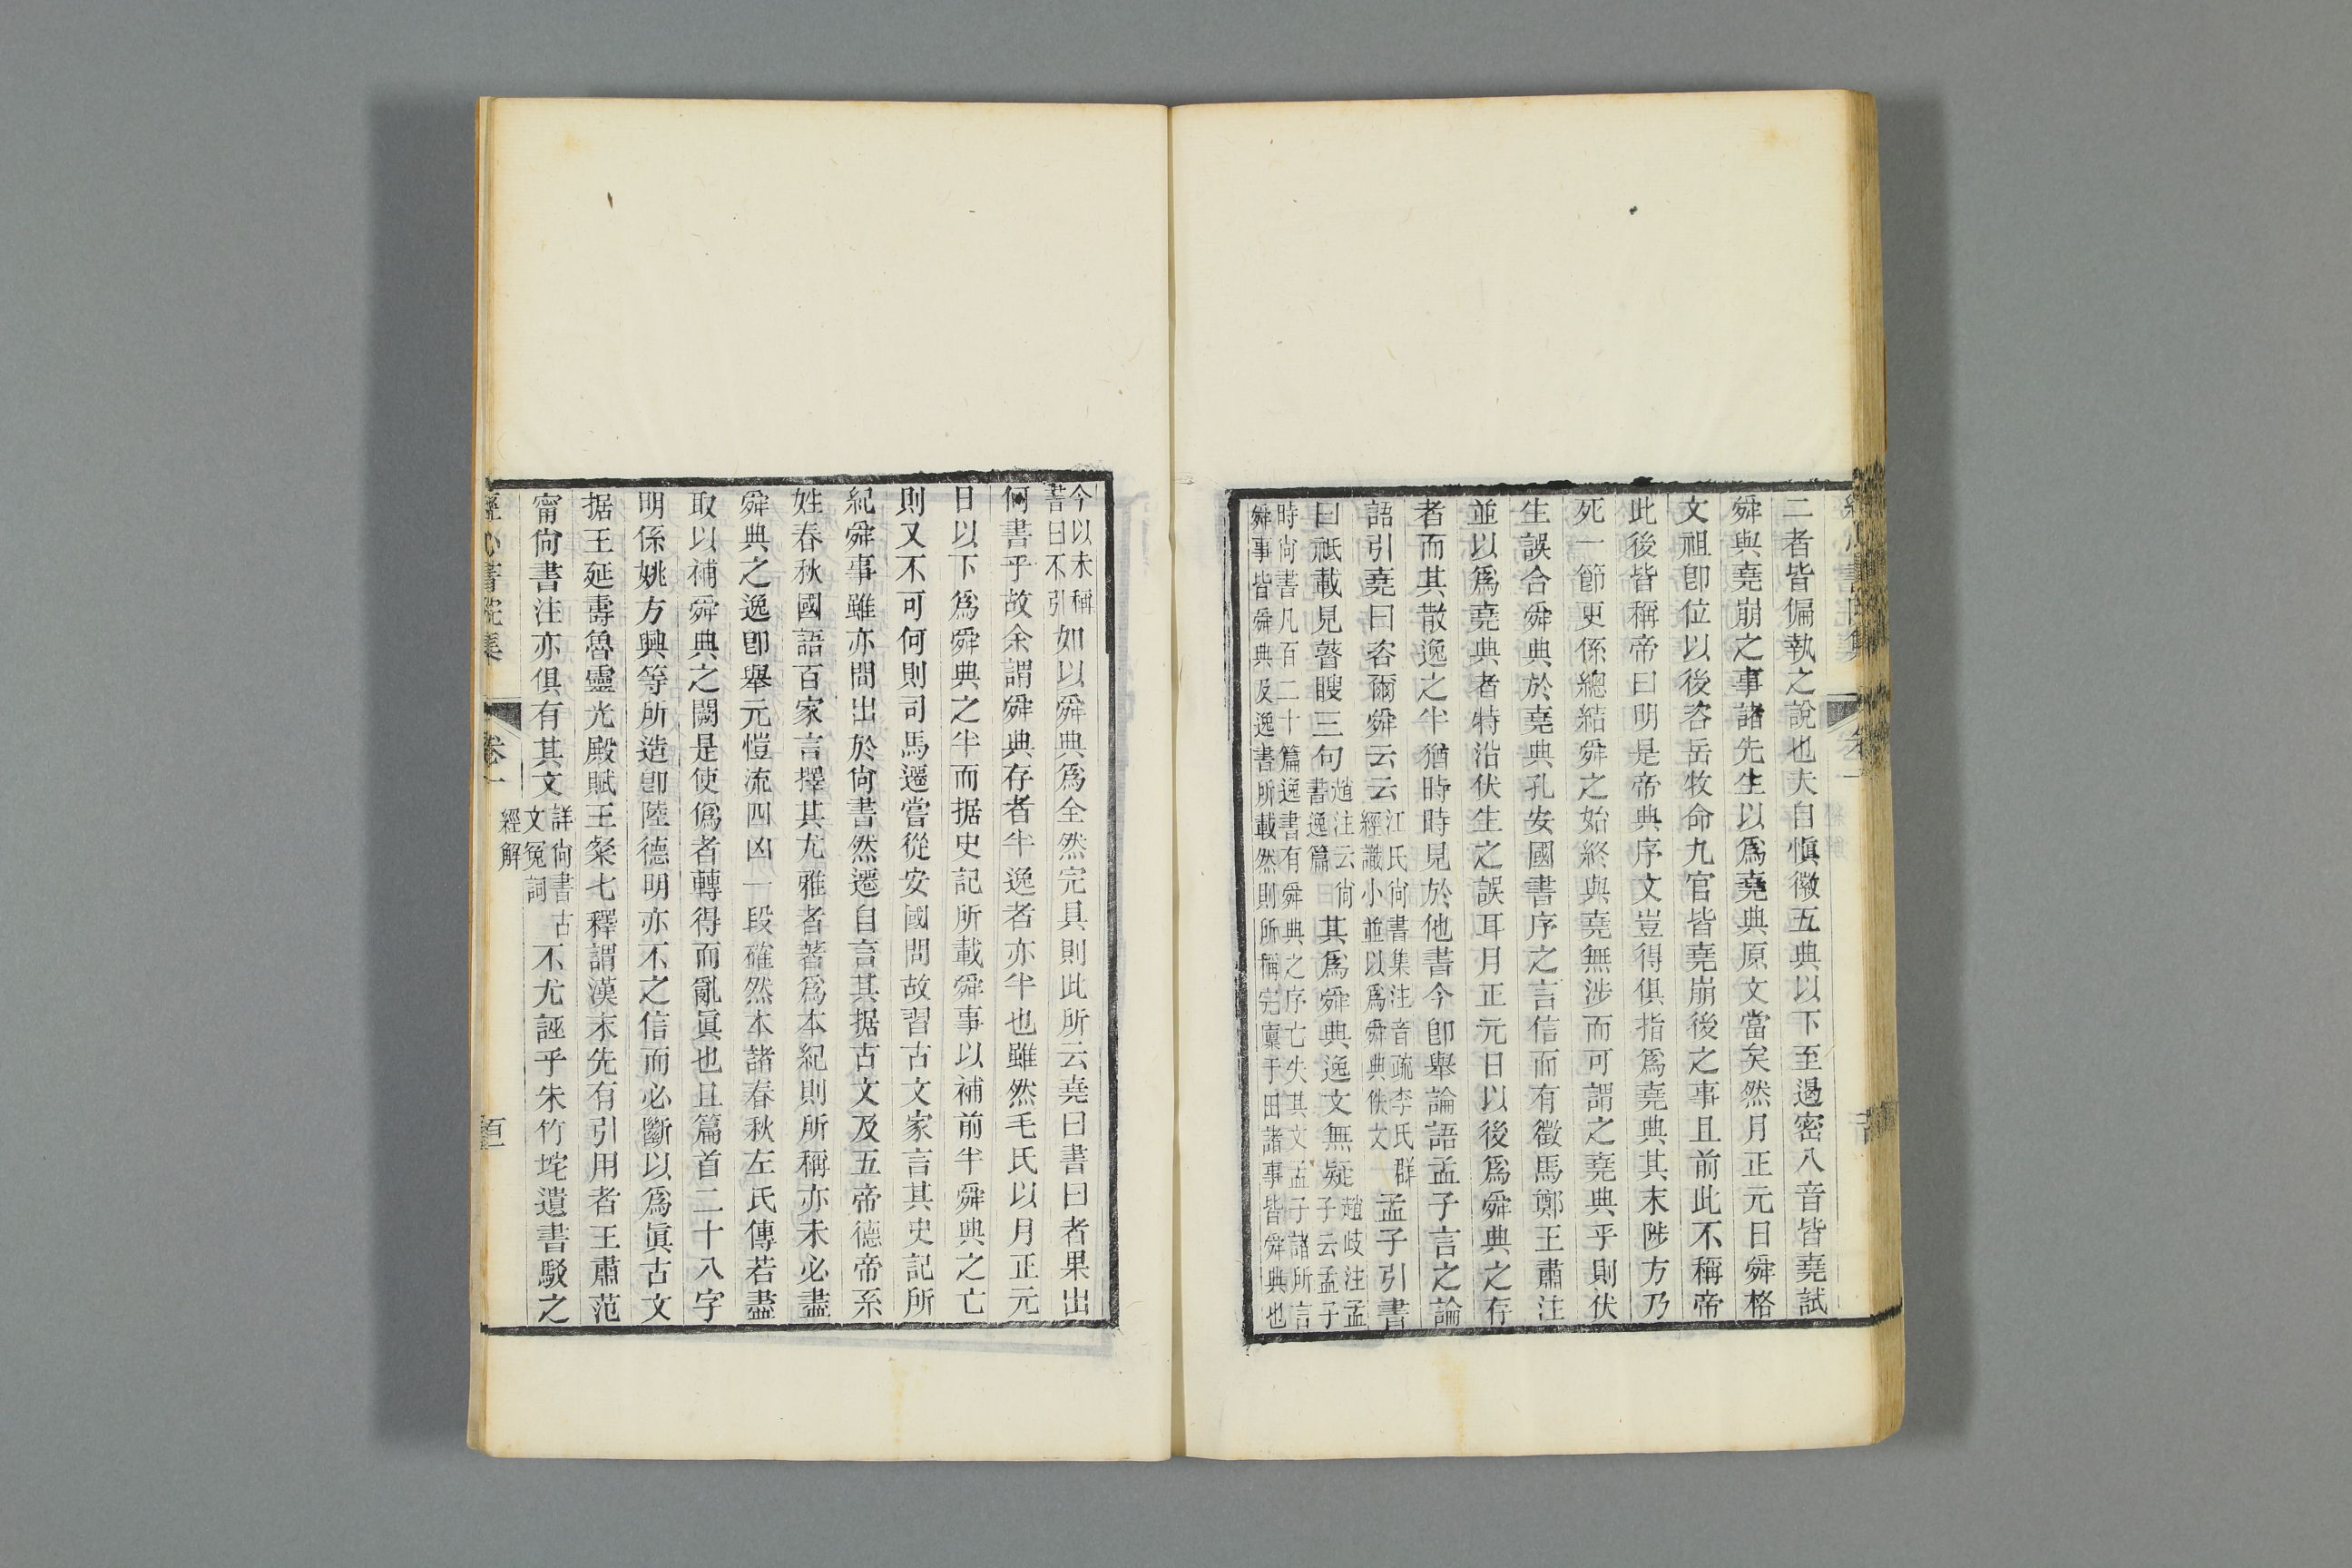 二者皆偏執之說也夫自愼徽五典以下至遏密八音皆堯試
舜與堯崩之事諸先生以爲堯典原文當矣然月正元日舜格
文祖卽位以後咨岳牧命九官皆堯崩後之事且前此不稱帝
此後皆稱帝曰明是帝典序文豈得俱指爲堯典其末陟方乃
死一節更係總結舜之始終與堯無涉而可謂之堯典乎則伏
生誤合舜典於堯典孔安國書序之言信而有徵馬鄭王肅注
並以爲堯典者特沿伏生之誤耳月正元日以後爲舜典之存
者而其散逸之半猶時時見於他書今卽舉論語孟子言之論
語引堯曰咨爾舜云云江氏尙書集注音疏李氏群經識小並以爲舜典佚文孟子引書
曰祇載見瞽瞍三句趙注云尙書逸篇其爲舜典逸文無疑趙歧注孟子云孟子
時尙書凡百二十篇逸書有舜典之序亡失其文孟子諸所言
舜事皆舜典及逸書所載然則所稱完稟于田諸事皆舜典也
今以未稱
書曰不引如以舜典爲全然完具則此所云堯曰書曰者果出
何書乎故余謂舜典存者半逸者亦半也雖然毛氏以月正元
日以下爲舜典之半而据史記所載舜事以補前半舜典之亡
則又不可何則司馬遷嘗從安國問故習古文家言其史記所
紀舜事雖亦間出於尙書然遷自言其据古文及五帝德帝系
姓春秋國語百家言擇其尤雅者著爲本紀則所稱亦未必盡
舜典之逸卽舉元愷流四凶一段確然本諸春秋左氏傳若盡
取以補舜典之闕是使僞者轉得而亂眞也且篇首二十八字
明係姚方興等所造卽陸德明亦不之信而必斷以爲眞古文
据王延壽魯靈光殿賦王粲七釋謂漢末先有引用者王肅范
甯尙書注亦俱有其文詳尙書古文冤詞不尤誣乎朱竹垞遺書駁之
經心書院集
卷一
經解